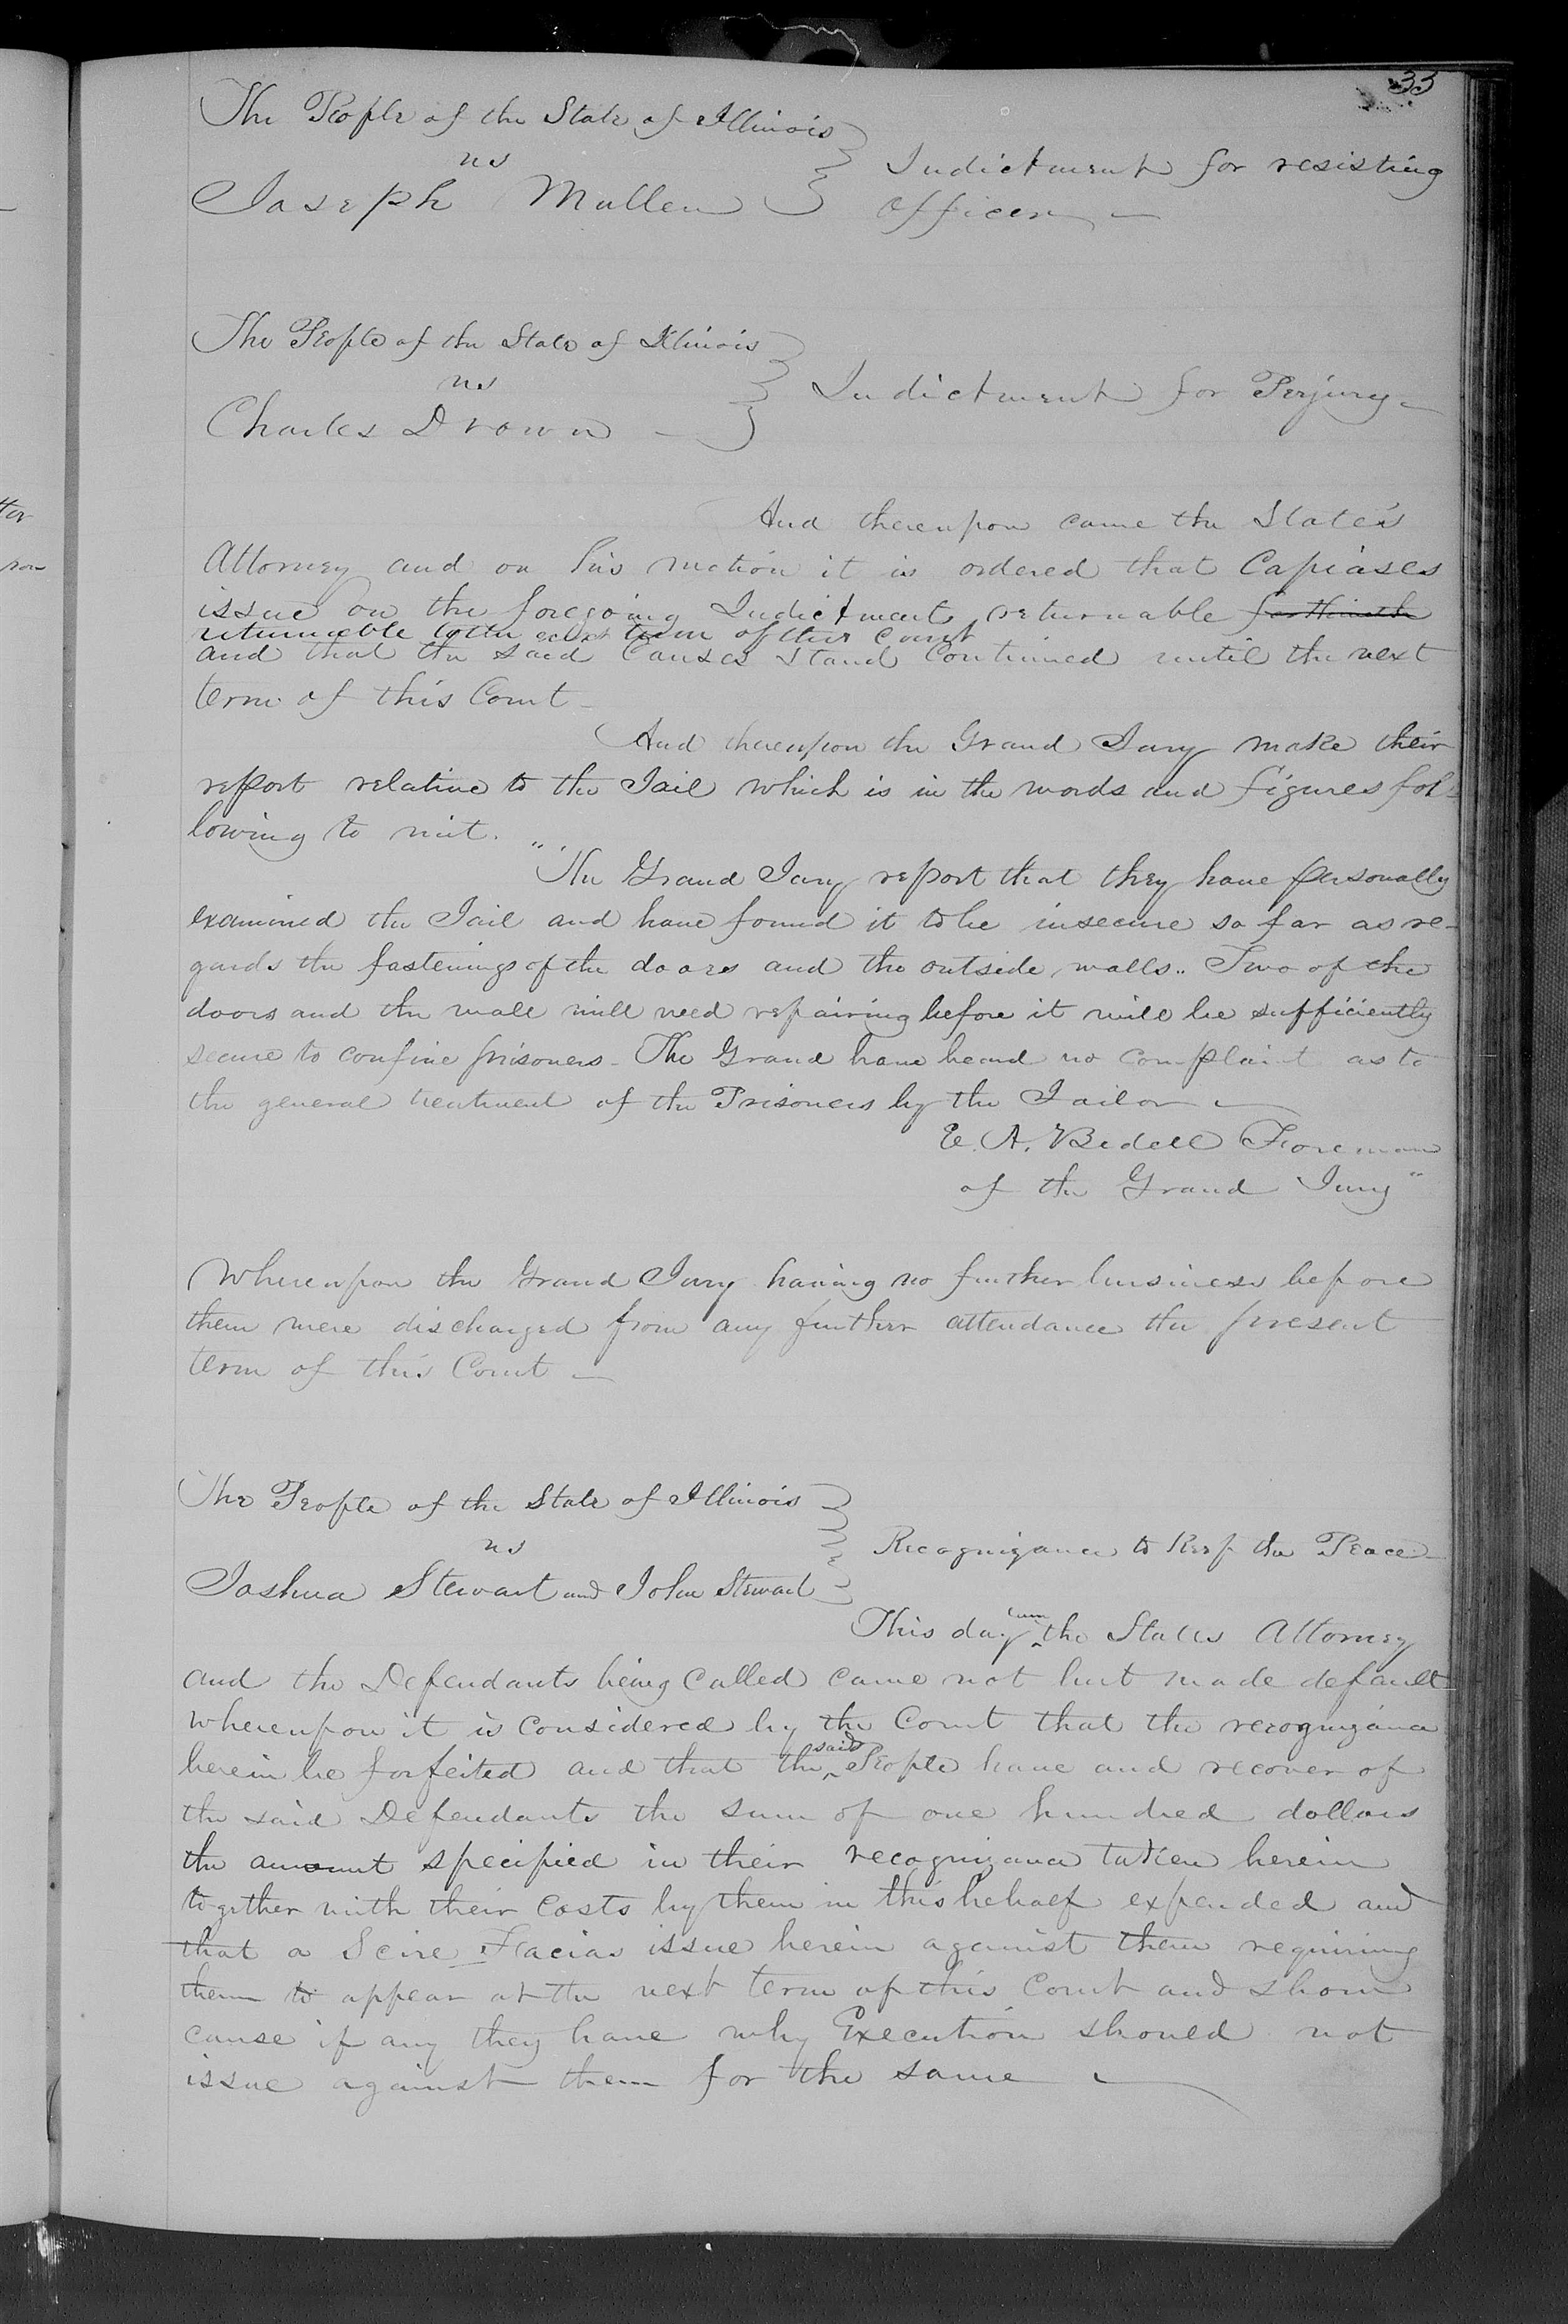 33
The People of the State of Illinois
vs
Joseph Mullen
Indictment for resisting
officer
The People of the State of Illinois
vs
Charles Drown
Indictment for Perjury
And thereupon came the State's
Attorney and on his motion it is ordered that Capiases
issue on the foregoing Indictments, returnable forthwith
returnable to the next term of this court
and that the said Causes stand Continued until the next
term of this Court
And thereupon the Grand Jury make their
report relative to the Jail which is in the words and figures fol-
lowing to wit.
"The Grand Jury report that they have personally
examined the Jail and have found it to be insecure so far as re-
gards the fastenings of the doors and the outside walls.. Two of the
doors and the wall will need repairing before it will be sufficiently
secure to confine prisoners - The Grand have heard no complaint as to
the general treatment of the Prisoners by the Jailor
E. A. Bedell Foreman
of the Grand Jury"
Whereupon the Grand Jury having no further business before
them were discharged from any further attendance the present
term of this Court
The People of the State of Illinois
vs
Joshua Stewart and John Stewart
Recognizance to Keep the Peace
This day came the States Attorney
and the Defendants being called came not but made default
whereupon it is considered by the Court that the recognizance
herein be forfeited and that the said People have and recover of
the said Defendants the sum of one hundred dollars
the amount specified in their recognizance taken herein
together with their costs by them in this behalf expended and
that a Scire Facias issue herein against them requiring
them to appear at the next term of this Court and show
cause if any they have why Execution should not
issue against them for the same